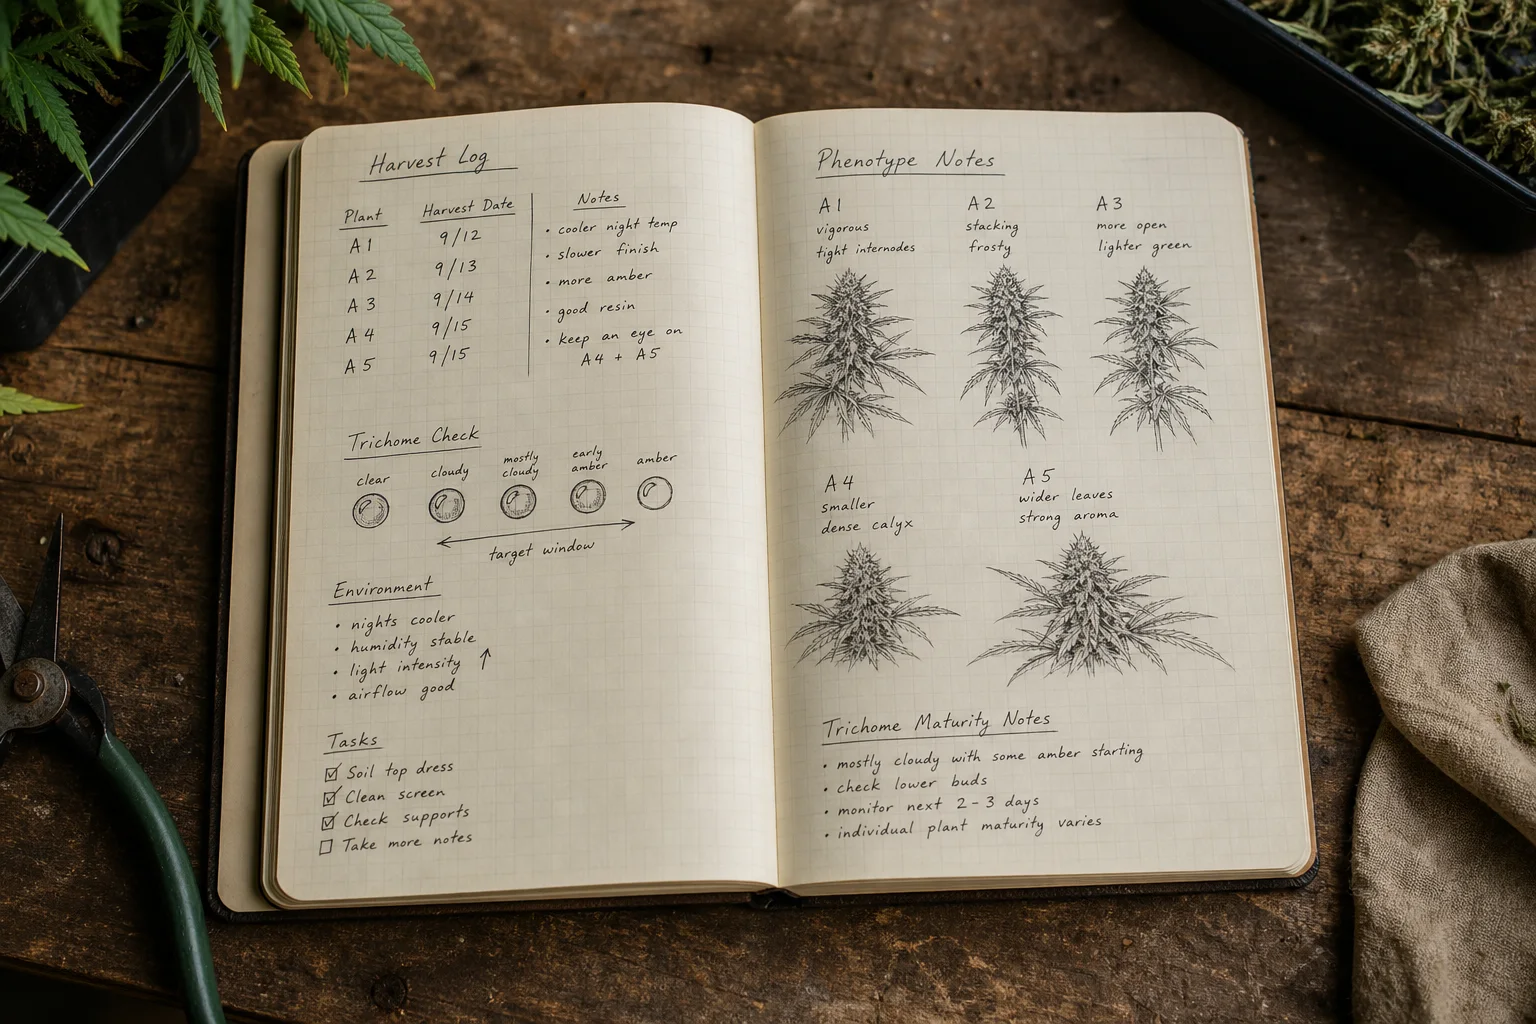 Harvest Log
Plant Harvest Date Notes
A1 9/12
A2 9/13
A3 9/14
A4 9/15
A5 9/15
• cooler night temp
• slower finish
• more amber
• good resin
• keep an eye on
A4 + A5
Trichome Check
clear
cloudy
mostly
cloudy
early
amber
amber
target window
Environment
• nights cooler
• humidity stable
• light intensity ↑
• airflow good
Tasks
☑ Soil top dress
☑ Clean screen
☑ Check supports
☐ Take more notes
Phenotype Notes
A1
vigorous
tight internodes
A2
stacking
frosty
A3
more open
lighter green
A4
smaller
dense calyx
A5
wider leaves
strong aroma
Trichome Maturity Notes
• mostly cloudy with some amber starting
• check lower buds
• monitor next 2-3 days
• individual plant maturity varies